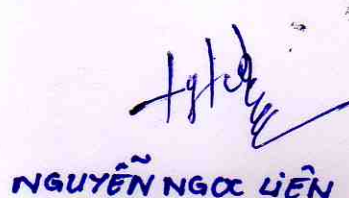 NGUYỄN NGOC LIÊN